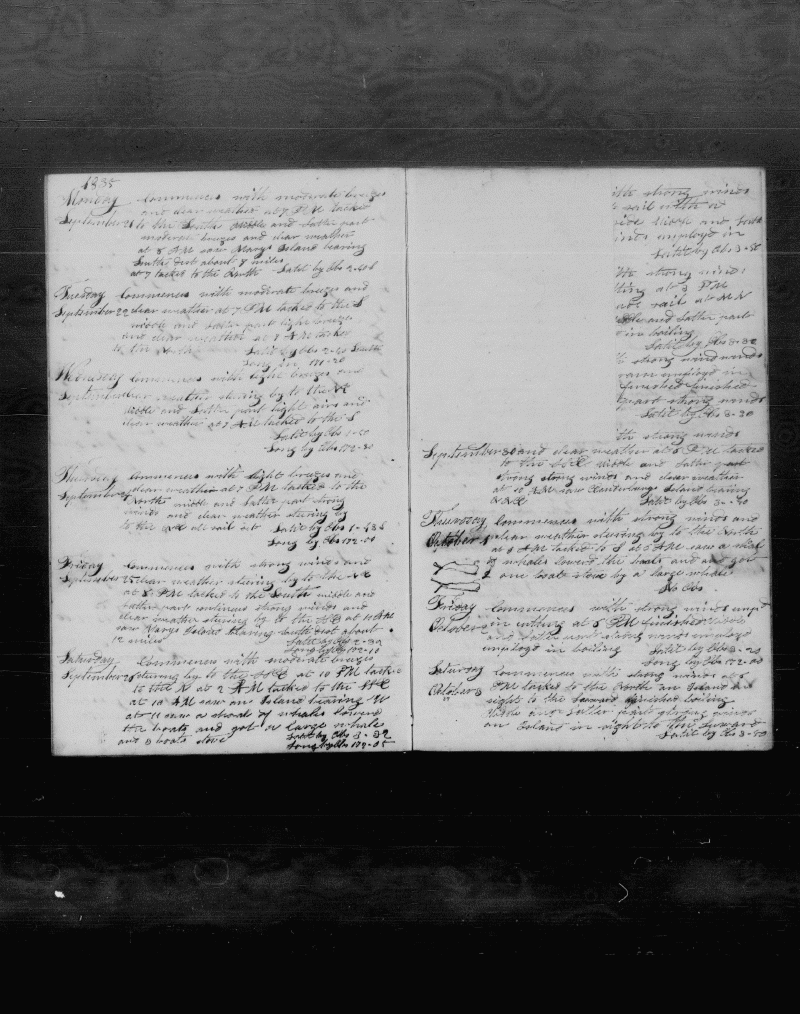 1885
Monday Commences with moderate breezes
and clear weather at 7 PM tacked
September 21 to the South middle and latter part
moderate breezes and clear weather
at 8 AM saw Marys Island bearing
South dist about 8 miles
at 7 tacked to the South Latit by Obs
Tuesday Commences with moderate breezes and
September 22 clear weather at 7 PM tacked to the S
middle and latter part light breezes
and clear weather at 8 AM tacked
to the North Latit by Obs 2-40 South
Long in 171-20
Wednesday Commences with light breezes and
September clear weather steering by to the NE
middle and latter part light airs and
clear weather at 7 AM tacked to the S
Latit by Obs
Long by Obs 172-30
Thursday Commences with light breezes and
September 24 clear weather at 7 PM tacked to the
North middle and latter part strong
winds and clear weather steering by
to the NE all sail out Latit by Obs
Long by Obs 172-00
Friday Commences with strong winds and
September 25 clear weather steering by to the NE
at 5 PM tacked to the South middle and
latter part continues strong winds and
clear weather steering by to the at AM
saw Marys Island bearing South dist about
12 miles Latit by Obs 2-30
Long by Obs 172-10
Saturday Commences with moderate breezes
September 26 steering by to the at 10 PM tack
to the N at 2 AM tacked to the
at 10 AM saw an Island bearing W
at 11 saw a shoal of whales lowered
the boats and got a large whale
and 3 boats stove Latit by Obs 3-32
Long by Obs 172-05
ith strong winds
sail with a
middle and latt
inds employd in
Latit by Obs 3-
the strong winds
ting at 3 PM
sail at
ddle and latter part
in boiling
Latit by Obs 3-32
strong winds
employd in
finished
strong winds
Latit by Obs 3-30
ith strong winds
September 30 and clear weather at 5 PM tacked
to the middle and latter part
strong winds and clear weather
at 10 AM saw Island bearing
Latit by Obs
Thursday Commences with strong winds and
October 1 clear weather steering by to the North
at 8 AM tacked to S at 5 AM saw a
of whales lowerd the boats and got
2 one boats stove by a large whale
No Obs
Friday Commences with strong winds
October 2 in cutting at 5 PM finished
and latter part strong winds employd
employd in boiling Latit by Obs 3-20
Long by Obs 172-00
Saturday Commences with strong winds at
October 3 PM tacked to the North an Island in
sight to the finished boiling
Middle and latter part strong winds
an Island in sight to the
Latit by Obs